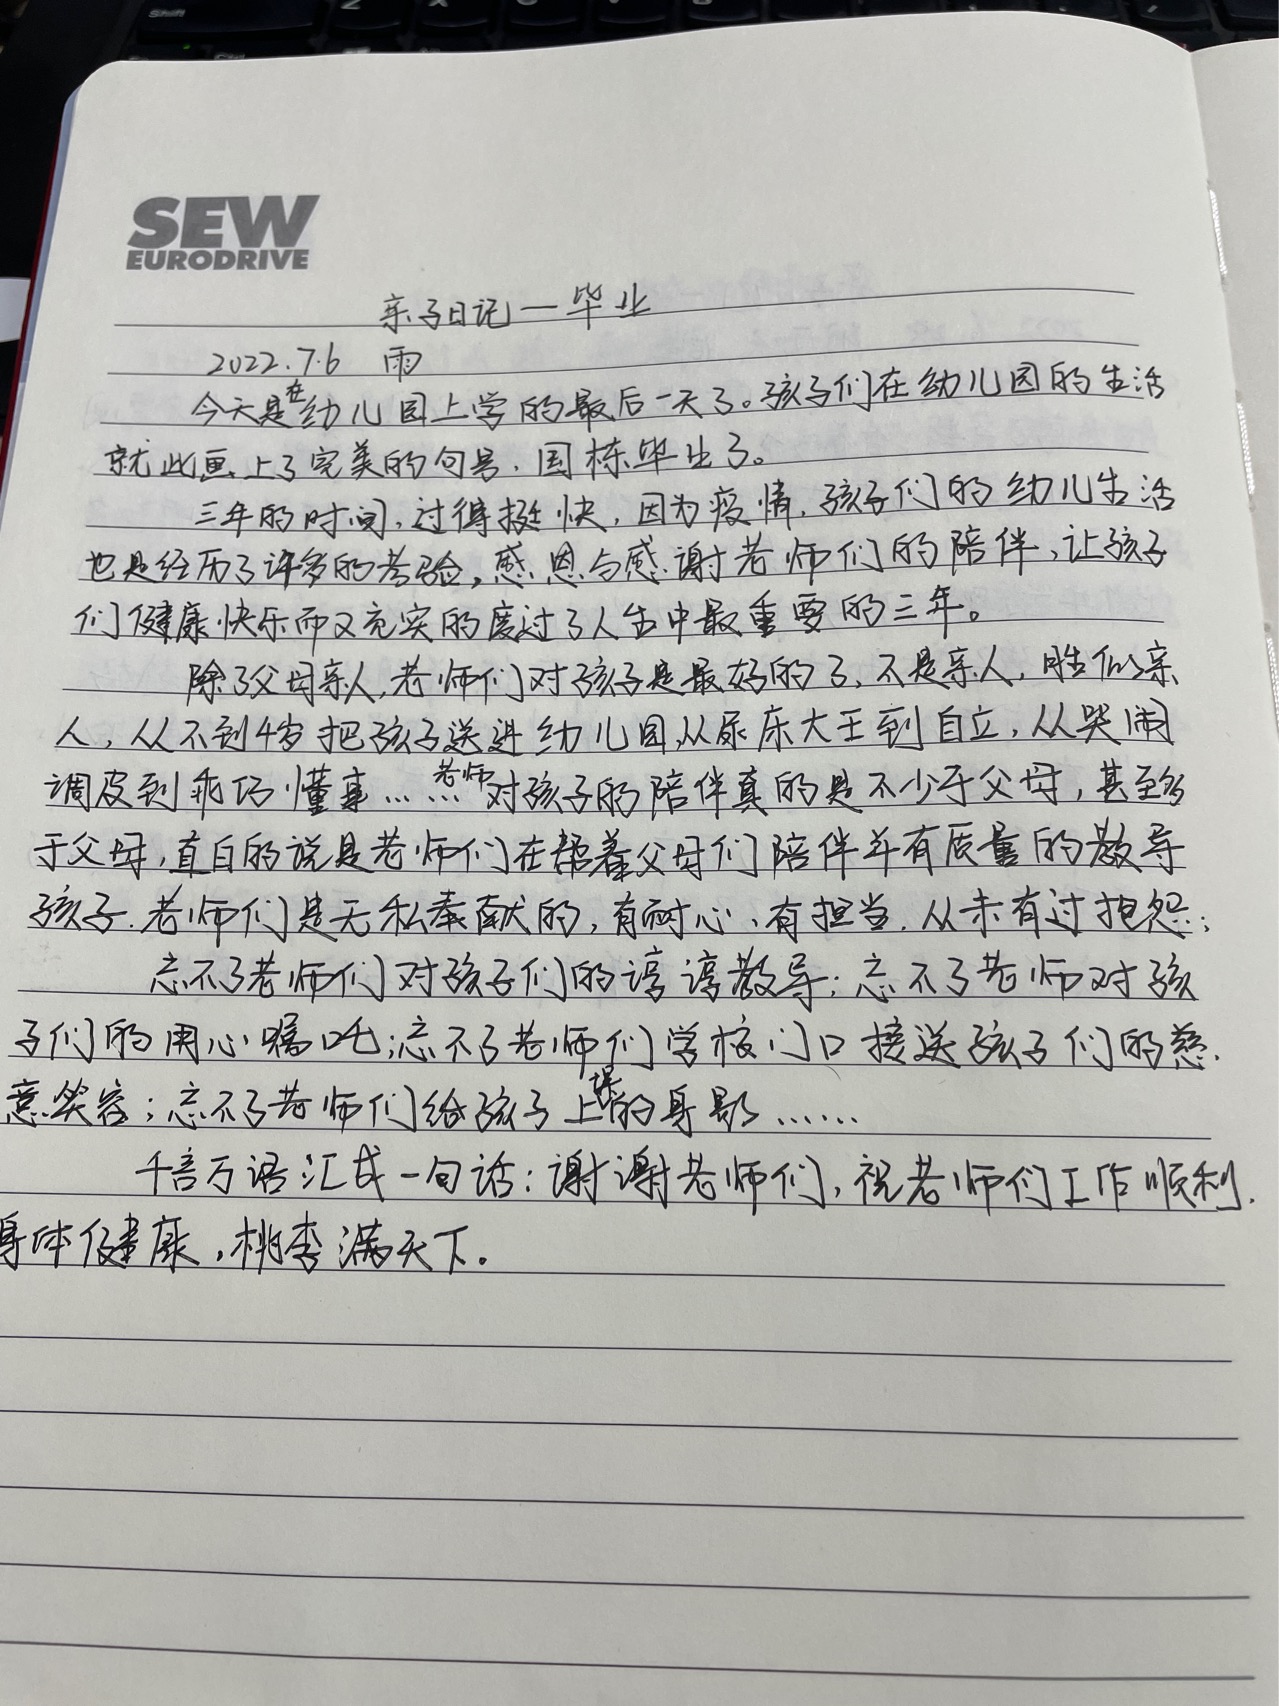 Shift
SEW
EURODRIVE
亲子日记一毕业
2022.7.6 雨
今天是在幼儿园上学的最后一天了。孩子们在幼儿园的生活
就此画上了完美的句号，国栋毕业了。
三年的时间，过得挺快，因为疫情，孩子们的幼儿生活
也是经历了许多的考验，感恩与感谢老师们的陪伴，让孩子
们健康快乐而又充实的度过了人生中最重要的三年。
除了父母亲人，老师们对孩子是最好的了，不是亲人，胜似亲
人，从不到4岁把孩子送进幼儿园，从尿床大王到自立，从哭闹
调皮到乖巧懂事……老师对孩子的陪伴真的是不少于父母，甚至多
于父母，直白的说是老师们在帮着父母们陪伴并有质量的教导
孩子．老师们是无私奉献的，有耐心、有担当．从未有过抱怨；
忘不了老师们对孩子们的谆谆教导；忘不了老师对孩
子们的用心嘱咐；忘不了老师们学校门口接送孩子们的慈
意笑容；忘不了老师们给孩子上课的身影……
千言万语汇成一句话：谢谢老师们，祝老师们工作顺利．
身体健康，桃李满天下。